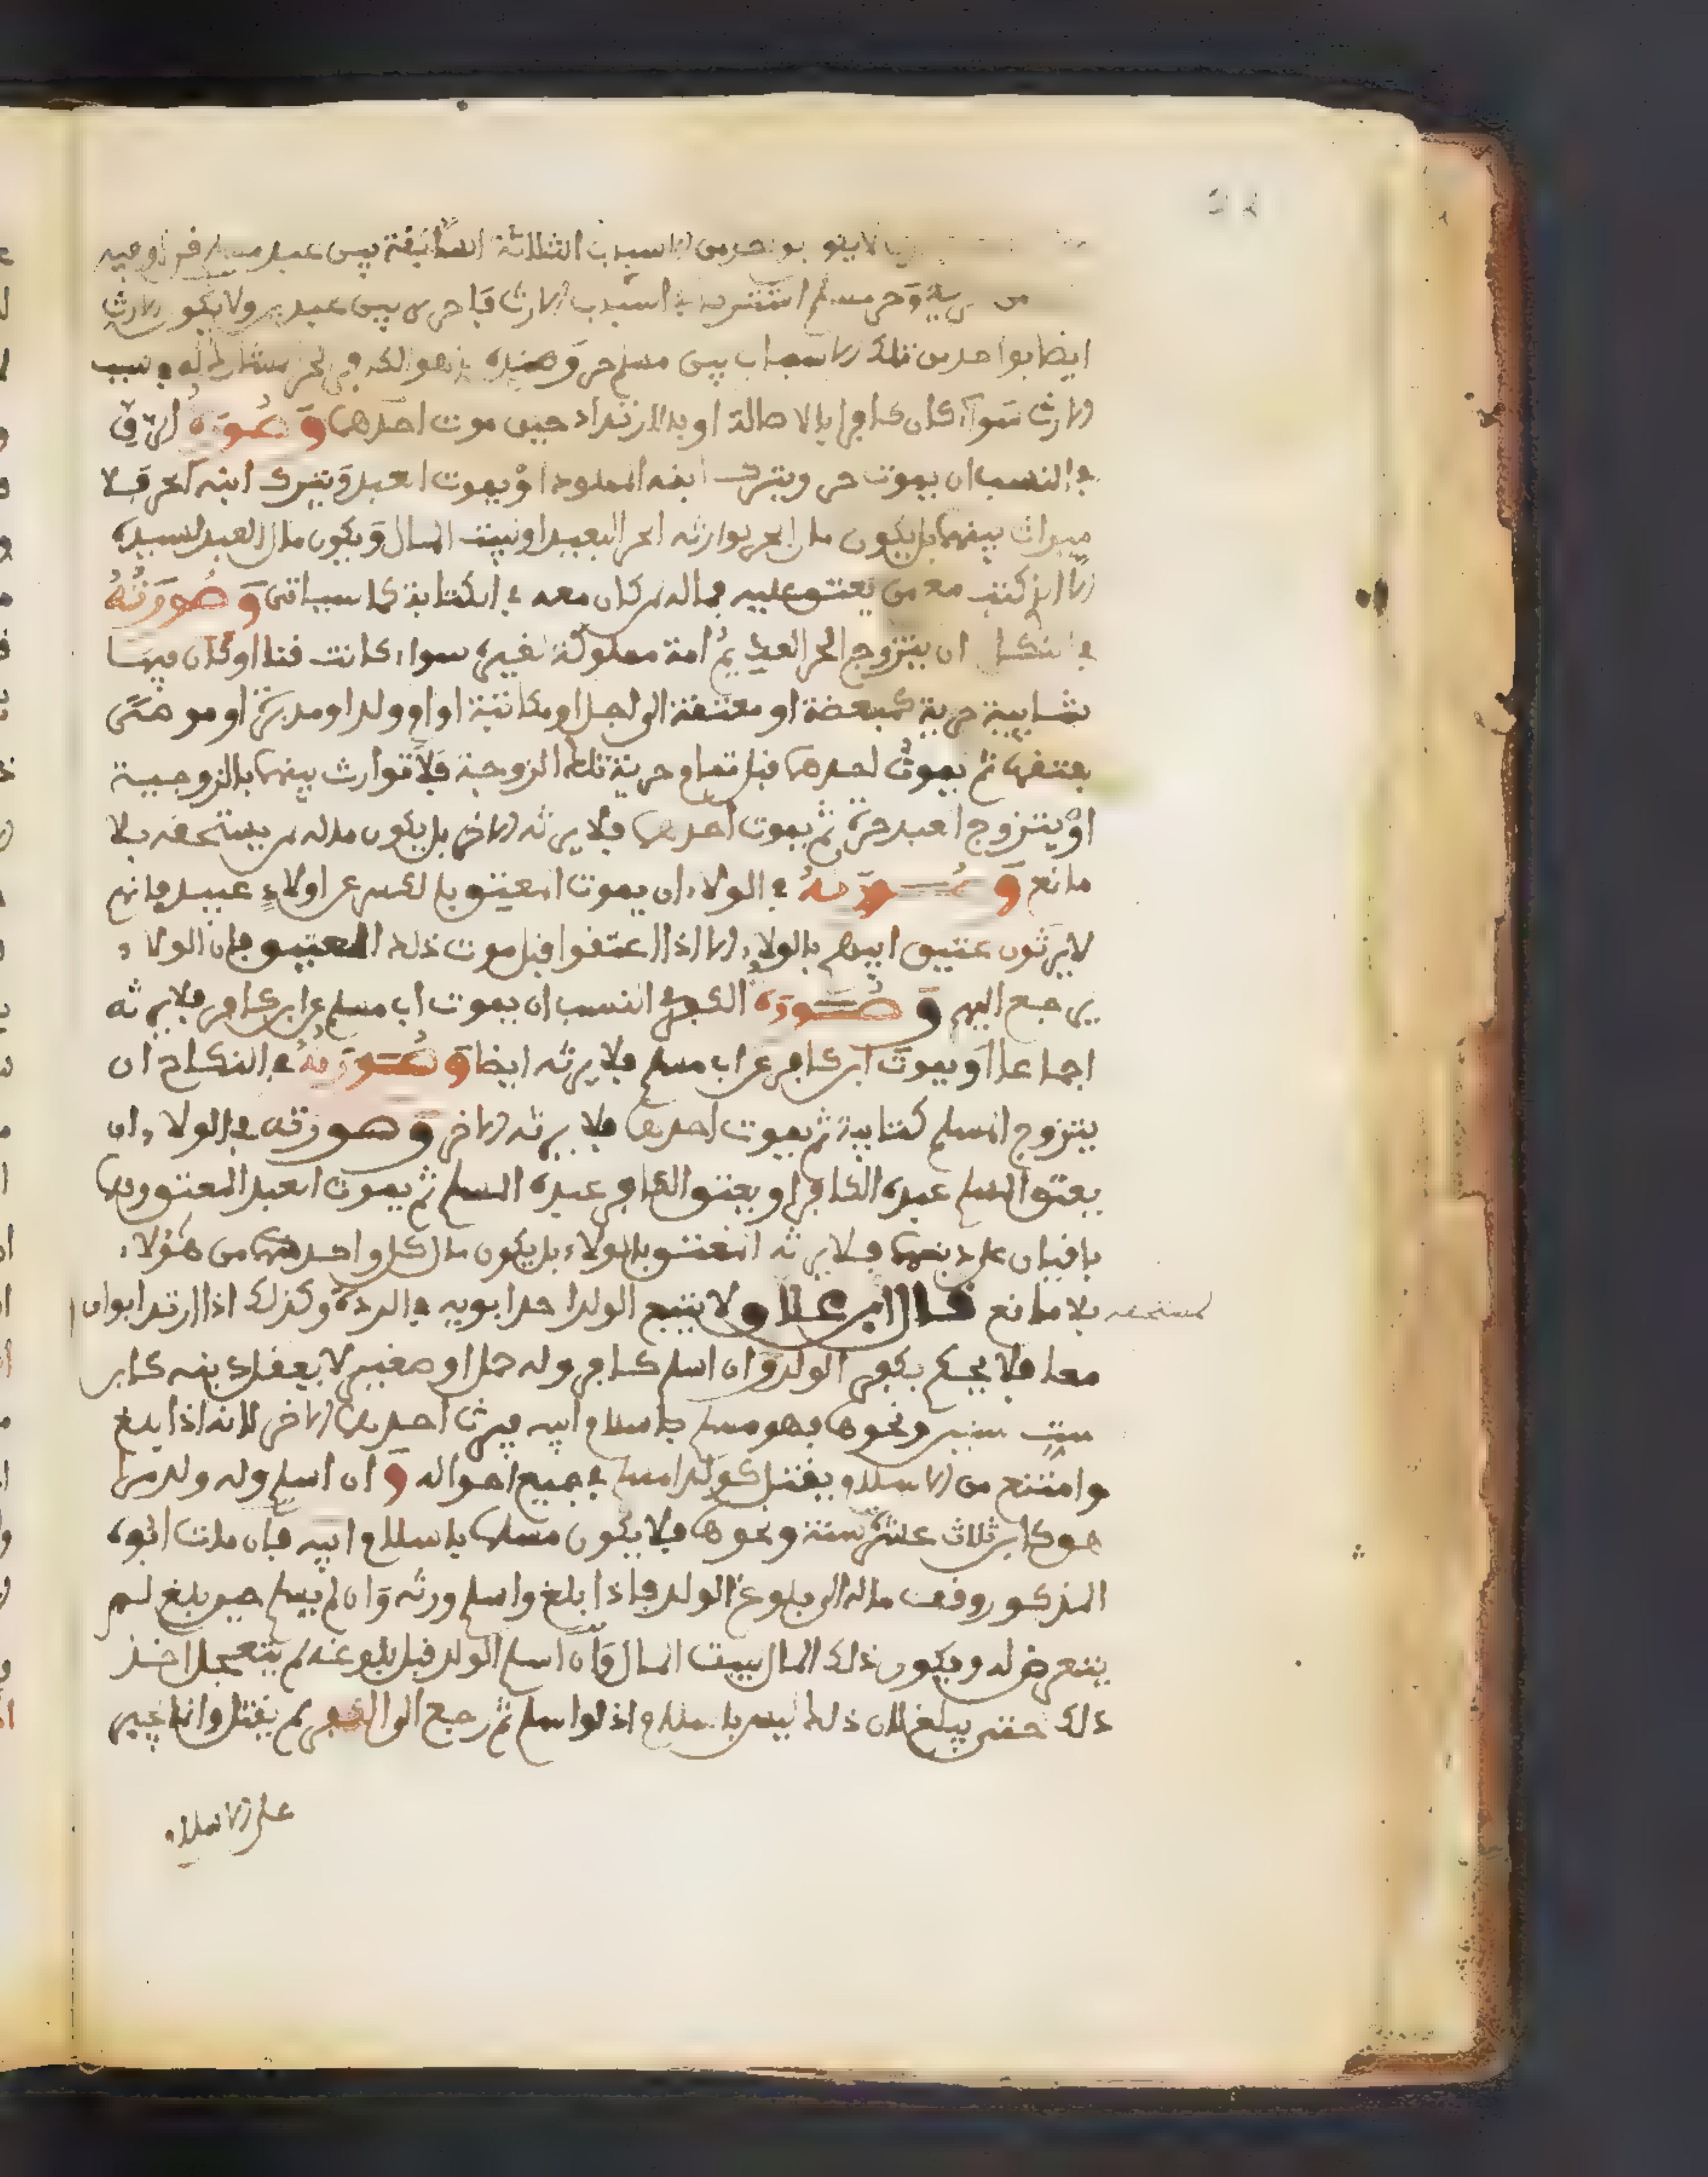 بواحد من الاسباب الثلاثة السابقة بين عبد
وحر مسلم اشتركا في اسباب الارث فاحرى بين عبدين ولا يكون الارث
ايضا بواحد من تلك الاسباب بين مسلم حر و
الارث سواء كان كافرا بالاصالة او بالارتداد حين موت احدهما وصورة الرق
في النسب ان يموت حر ويترك ابنه المملوك او يموت العبد ويترك ابنه الحر فلا
ميراث بينهما بل يكون مال الحر لوارثه الحر البعيد او لبيت المال ويكون مال العبد لسيده
الا ان كتب مع من يعتق عليه فماله لمن كان معه في الكتابة كما سياتي وصورته
في النكاح ان يتزوج الحر العبد ثم امة مملوكة لغيره سواء كانت قنا او كان فيها
شايبة حرية كمبعضة او معتقة الى اجل او مكاتبة او ام ولد او مدبرة او موصى
بعتقها ثم يموت احدهما قبل تمام حرية تلك الزوجة فلا توارث بينهما بالزوجية
او يتزوج العبد حرة ثم يموت احدهما فلا يرثه الاخر بل يكون ماله لمن يستحقه بلا
مانع وصورته في الولاء ان يموت المعتق بالكسر عن اولاد عبيد فانهم
لا يرثون عتيق ابيهم بالولاء الا اذا اعتقوا قبل موت ذلك العتيق فان الولاء
يرجع اليهم وصورة الكفر في النسب ان يموت اب مسلم عن ابن كافر فلا يرثه
اجماعا او يموت ابن كافر عن اب مسلم فلا يرثه ايضا وصورته في النكاح ان
يتزوج المسلم كتابية ثم يموت احدهما فلا يرثه الاخر وصورته في الولاء ان
يعتق المسلم عبده الكافر او يعتق الكافر عبده المسلم ثم يموت العبد المعتق وهما
باقيان على دينهما فلا يرثه المعتق بالولاء بل يكون مال كل واحد منهما من هؤلاء
لمستحقه بلا مانع قال ابن علاو لا يتبع الولد احد ابويه في الردة وكذلك اذا ارتد ابوان
معا فلا يحكم بكفر الولد وان اسلم كافر وله حمل او صغير لا يعقل دينه كابن
ست سنين ونحوها فهو مسلم باسلام ابيه فيرث احدهما الاخر لانه اذا بلغ
وامتنع من الاسلام يقتل كولد المسلم في جميع احواله وان اسلم وله ولد مراهق
هو كابن ثلاث عشرة سنة ونحوها فلا يكون مسلما باسلام ابيه فان مات ابوه
المذكور وقف ماله الى بلوغ الولد فاذا بلغ واسلم ورثه وان لم يسلم حين بلغ لم
يتعرض له ويكون ذلك المال لبيت المال وان اسلم الولد قبل بلوغه لم يتعجل اخذ
ذلك حتى يبلغ لان ذلك ليس باسلام اذ لو اسلم ثم رجع الى الكفر لم يقتل وانما يجبر
على الاسلام